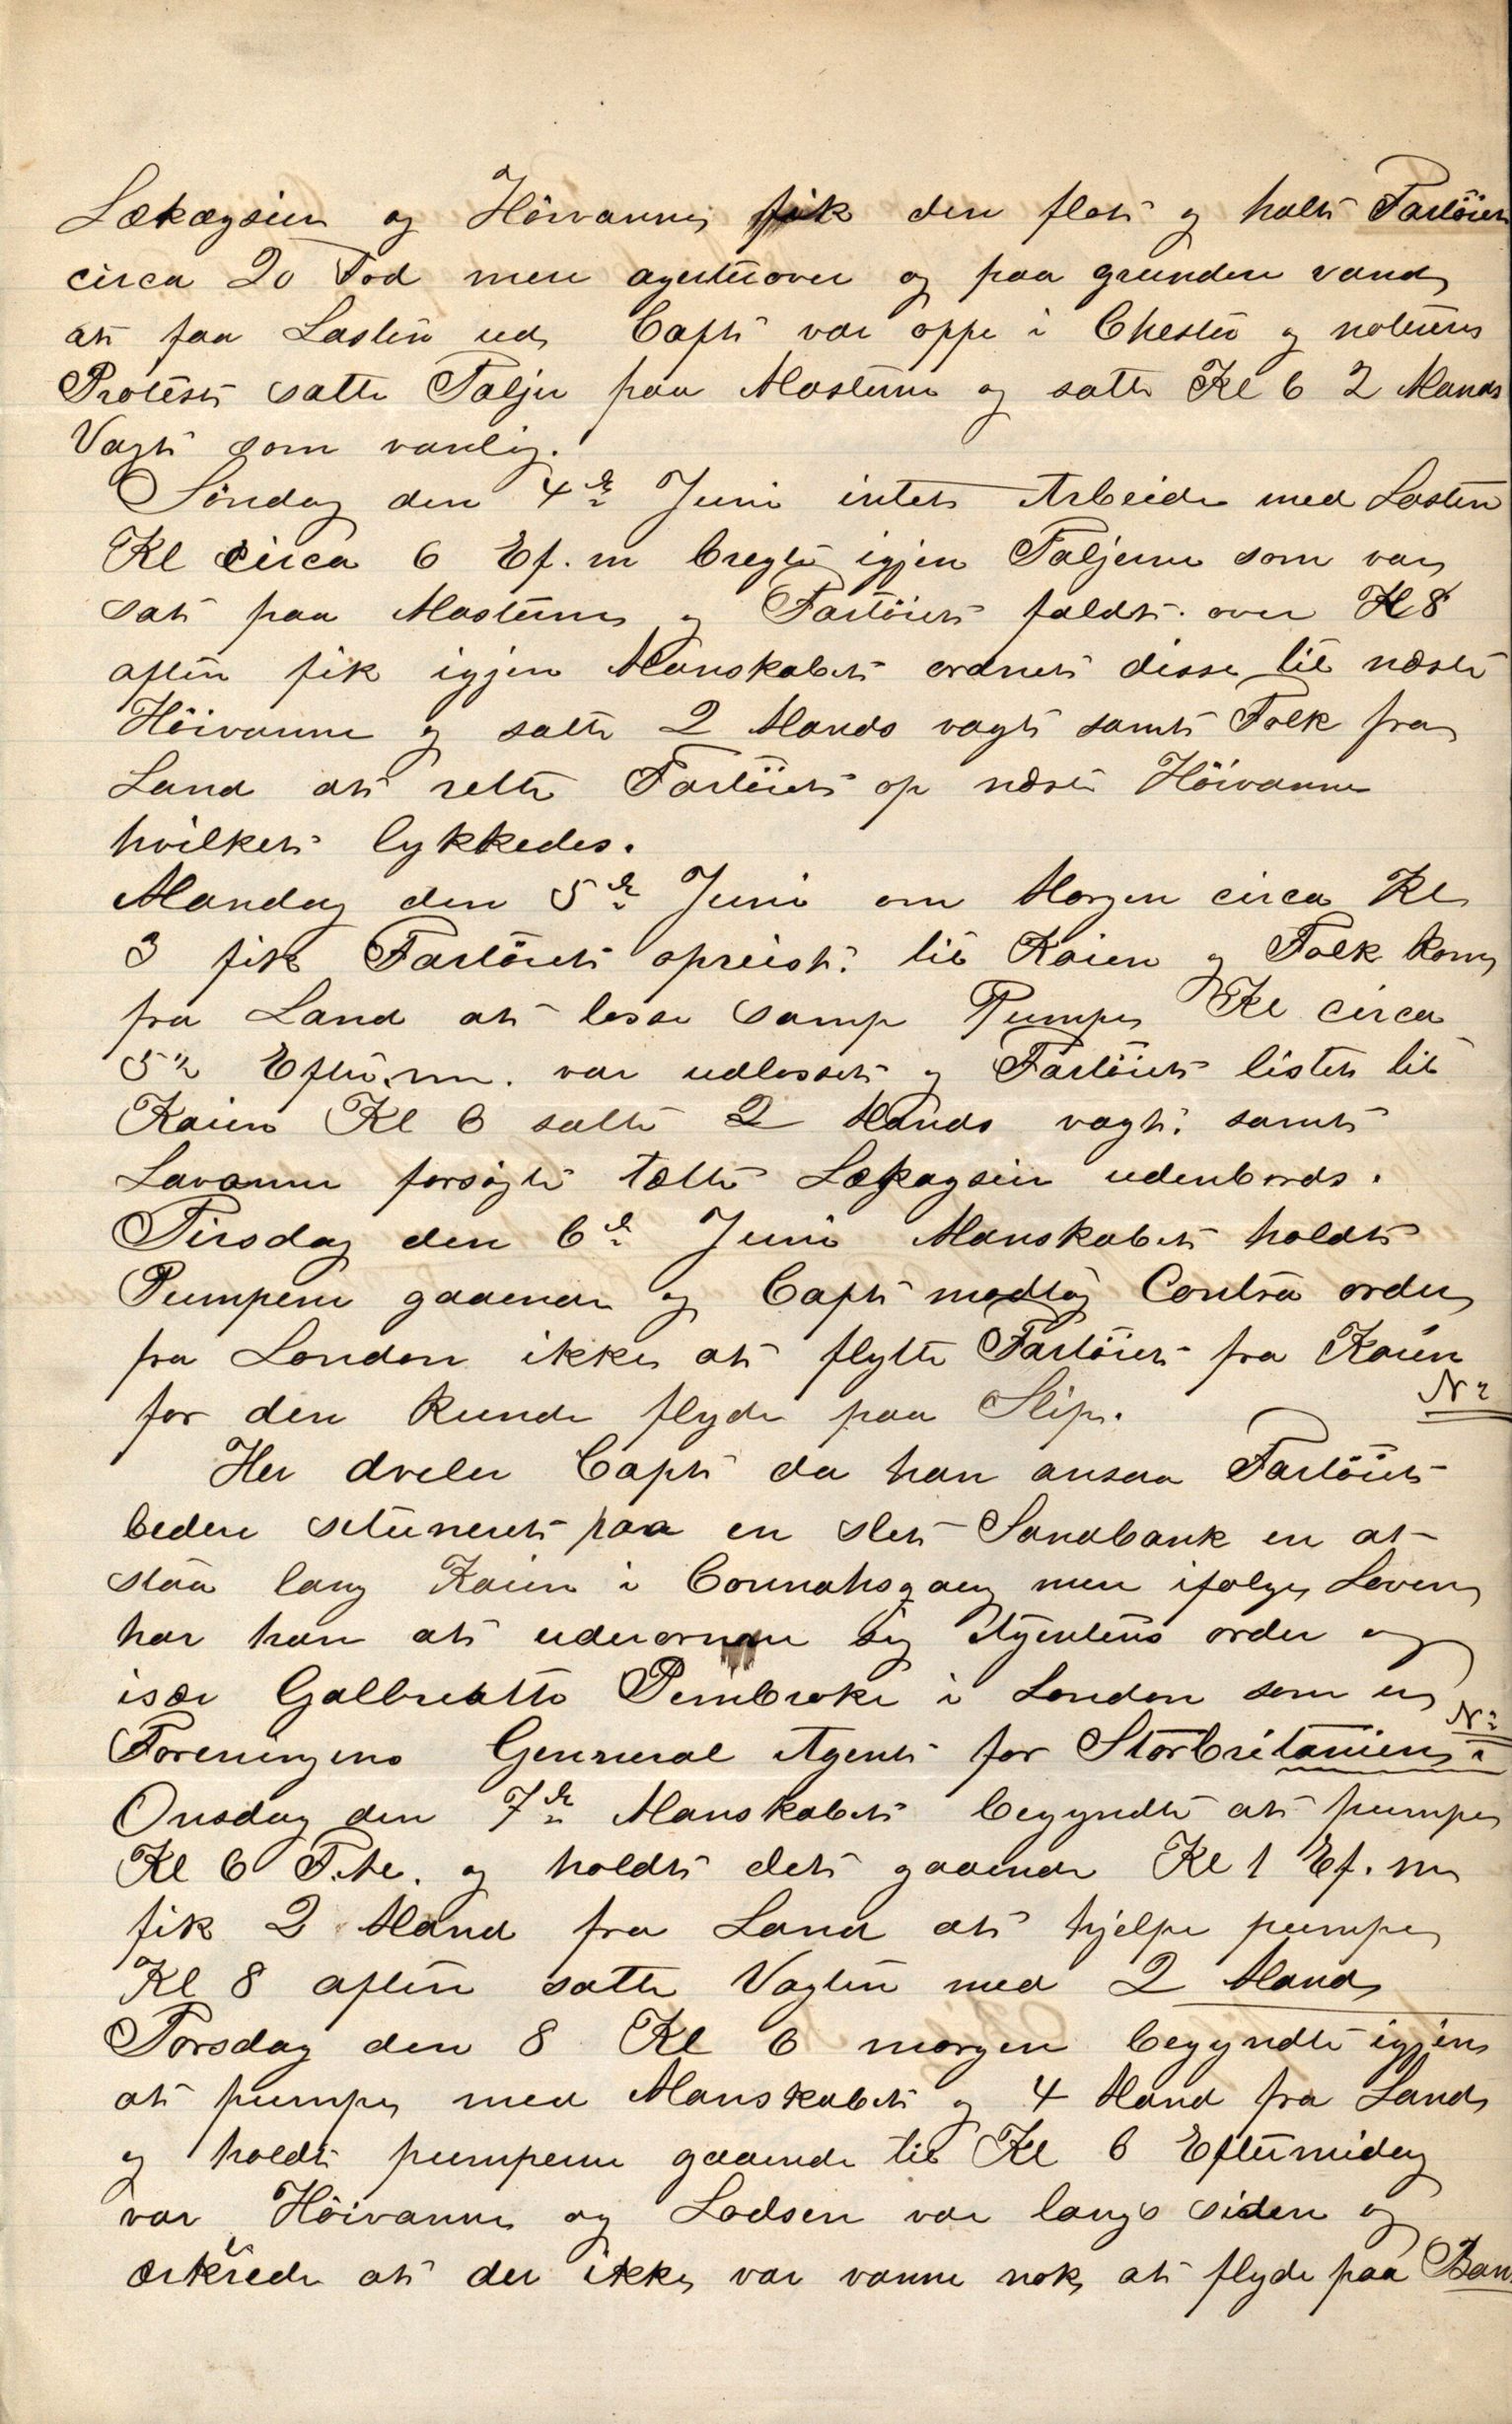 Lækagsien og Höivanne fik den flot og halt Fartöiet
circa 20 Fod mere agterover og paa grundere vand
at faa Lasten ud Capt var oppe i Chester og noteres
Protest satte Taljer paa Masterne og satte Kl 6 2 Mands
Vagt som vanlig.
Söndag den 4de Juni intet Arbeide med Lasten
Kl circa 6 Ef.m bregte igjen Taljerne som var
sat paa Masterne og Fartöiet faldt over Kl 8
aften fik igjen Manskabet ordnet disse til næste
Höivanne og satte 2 Mands vagt samt Folk fra
Land at rette Fartöiet op næste Höivanne
hvilket lykkedes.
Mandag den 5de Juni om Morgen circa Kl
3 fik Fartöiet opreist til Kaien og Folk kom
fra Land at losse samp Pumpe Kl circa
5 Efter.m. var udlosset og Fartöiet listet til
Kaien Kl 6 satte 2 Mands vagt samt
Lavanne forsögte tætte Lækagsien udenbords.
Tirsdag den 6de Juni Manskabet holdt
Pumpene gaaende og Capt modtog Contra order
fra London ikke at flytte Fartöiet fra Kaien
for den kunde flyde paa Slip.
No
Her dveler Capt da han ansaa Fartöiet
bedere situneret paa en slet Sandbank en at
staa lang Kaien i Connahsqaey men ifolge Loven
har han at underornne sig Agentens order og
især Galbreatts Pembroke i London som er
No
Foreningens Genneral Agent for Storbritanien
Onsdag den 7de Manskabet begyndte at pumpe
Kl 6 F.M. og holdt det gaaende Kl 1 Ef.m
fik 2 Mand fra Land at hjelpe pumpe
Kl 8 aften satte Vagten med 2 Mand
Torsdag den 8 Kl 6 morgen begyndte igjen
at pumpe med Manskabet og 4 Mand fra Land
og holdt pumpene gaaende til Kl 6 Eftermidag
var Höivanne og Lodsen var langs siden og
ærklrede at der ikke var vanne nok at flyde paa Ban